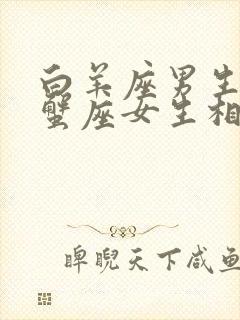 白羊座男生
蟹座女生相
睥睨天下咸鱼